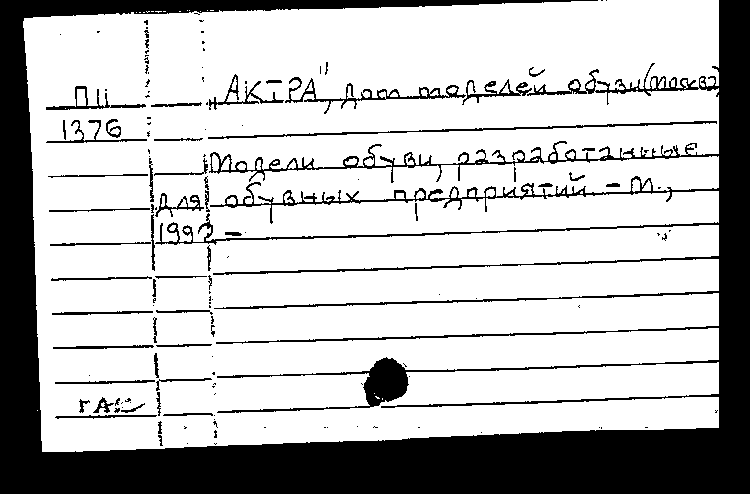 П11 „АКТРА", дом моделей обуви (Москва)
1376
Модели обуви, разработанные
для обувных предприятий. – М.,
1992 –